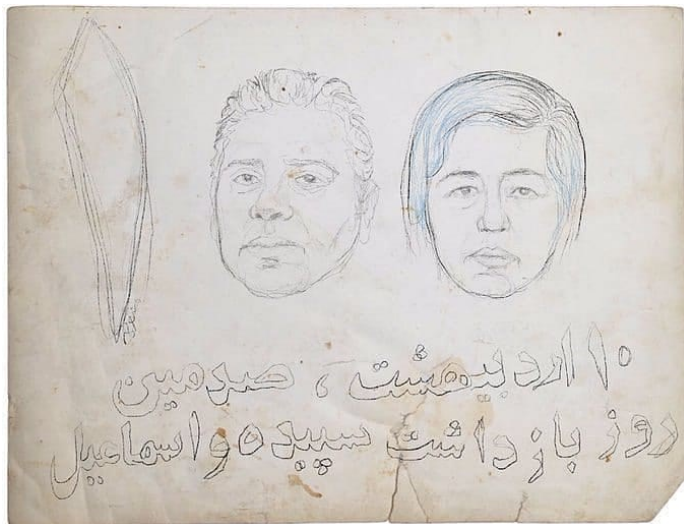 ۱۰ اردیبهشت، صدمین
روز بازداشت سپیده و اسماعیل